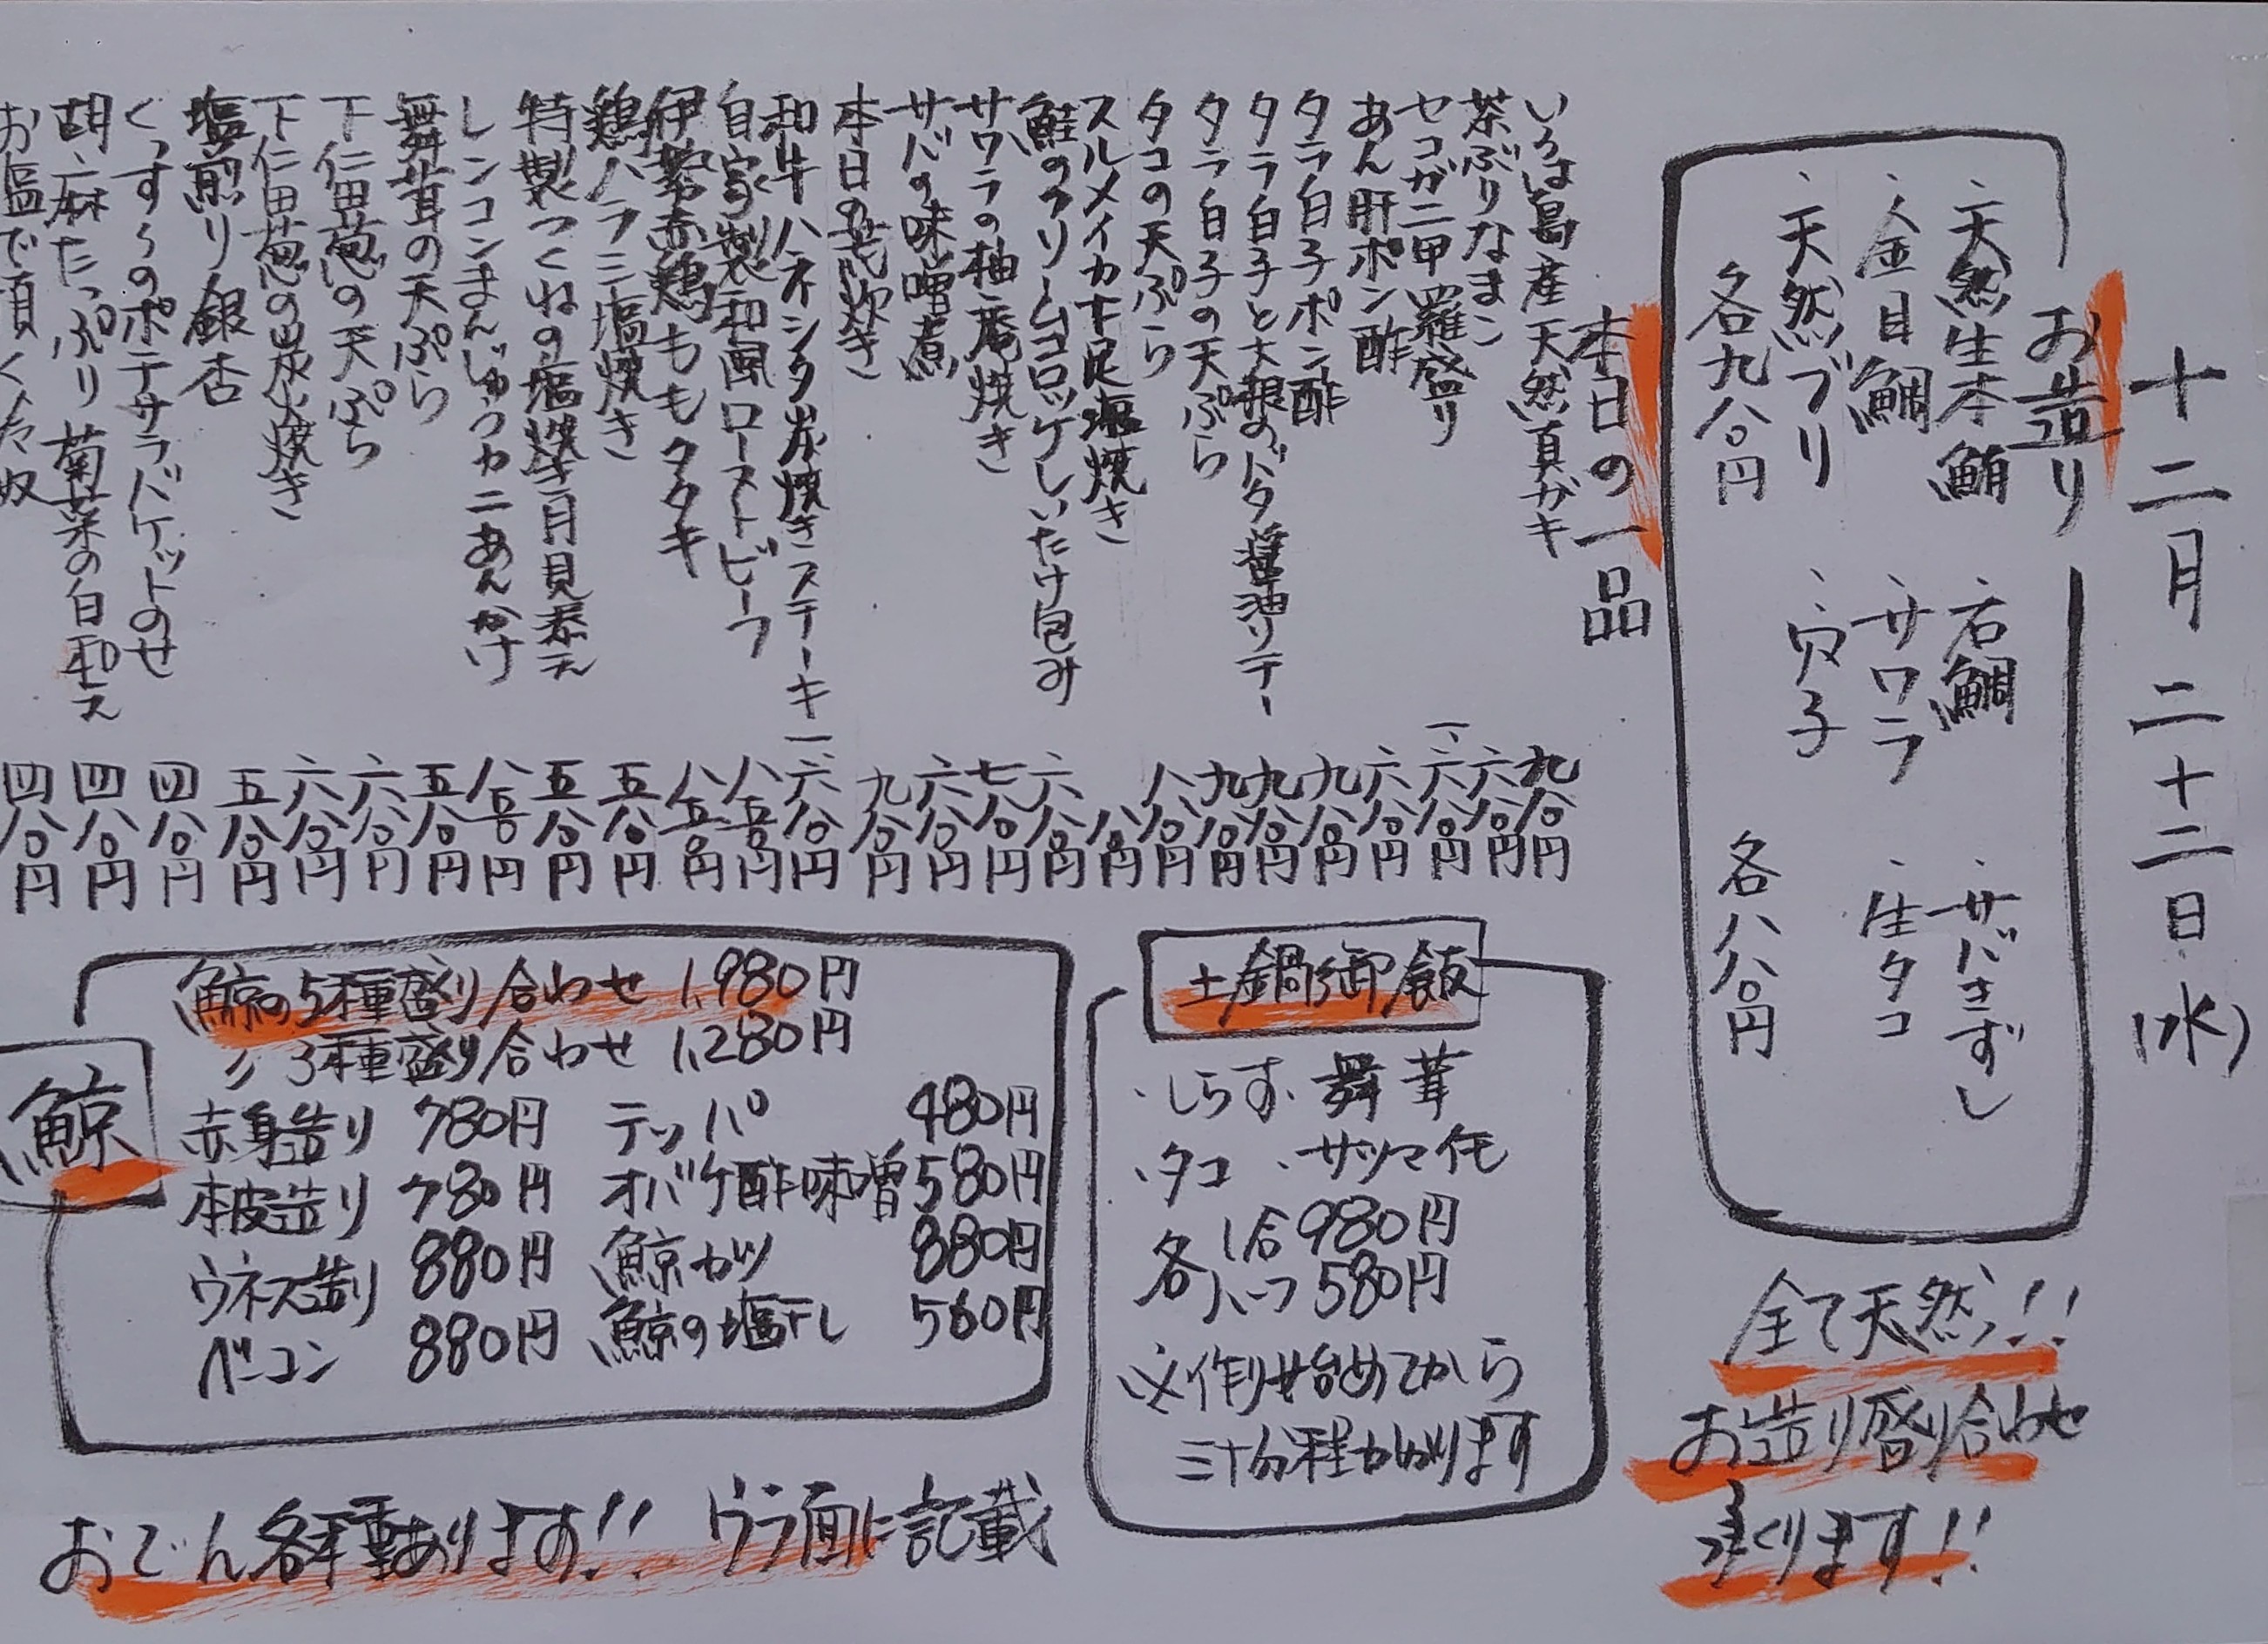 十二月二十二日(水)
お造り
・天然生本鮪
・金目鯛
・天然ブリ
各九八〇円
・石鯛
・サワラ
・穴子
・サバきずし
・生タコ
各八八〇円
全て天然!!
お造り盛り合わせ
承ります!!
本日の一品
いろは島産天然真ガキ 九八〇円
茶ぶりなまこ 六八〇円
セコガニ甲羅盛り 一、六八〇円
あん肝ポン酢 六八〇円
タラ白子ポン酢 九八〇円
タラ白子と大根のバター醤油ソテー 九八〇円
タラ白子の天ぷら 九八〇円
タコの天ぷら 八八〇円
スルメイカ下足塩焼き 八八〇円
鮭のクリームコロッケしいたけ包み 六八〇円
サワラの柚庵焼き 七八〇円
サバの味噌煮 六八〇円
本日の荒炊き 九八〇円
和牛ハネシタ炭焼きステーキ 一、六八〇円
自家製和風ローストビーフ 八五〇円
伊勢赤鶏ももタタキ 八五〇円
鶏ハラミ塩焼き 五八〇円
特製つくねの塩焼き月見添え 五八〇円
レンコンまんじゅうカニあんかけ 八五〇円
舞茸の天ぷら 五八〇円
下仁田葱の天ぷら 六八〇円
下仁田葱の炭火焼き 六八〇円
塩煎り銀杏 五八〇円
くっすぅのポテサラバケットのせ 四八〇円
胡麻たっぷり菊菜の白和え 四八〇円
お塩で頂く冷奴 四八〇円
土鍋御飯
・しらす ・舞茸
・タコ ・サツマイモ
各1合 980円
各ハーフ 580円
※作り始めてから
三十分程かかります
鯨
鯨の5種盛り合わせ 1,980円
〃 3種盛り合わせ 1,280円
赤身造り 780円 テッパ 480円
本皮造り 780円 オバケ酢味噌 580円
ウネス造り 880円 鯨カツ 880円
ベーコン 880円 鯨の塩干し 560円
おでん各種あります!! ウラ面に記載